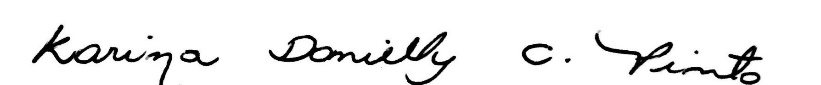 Karina Danielly C. Pinto